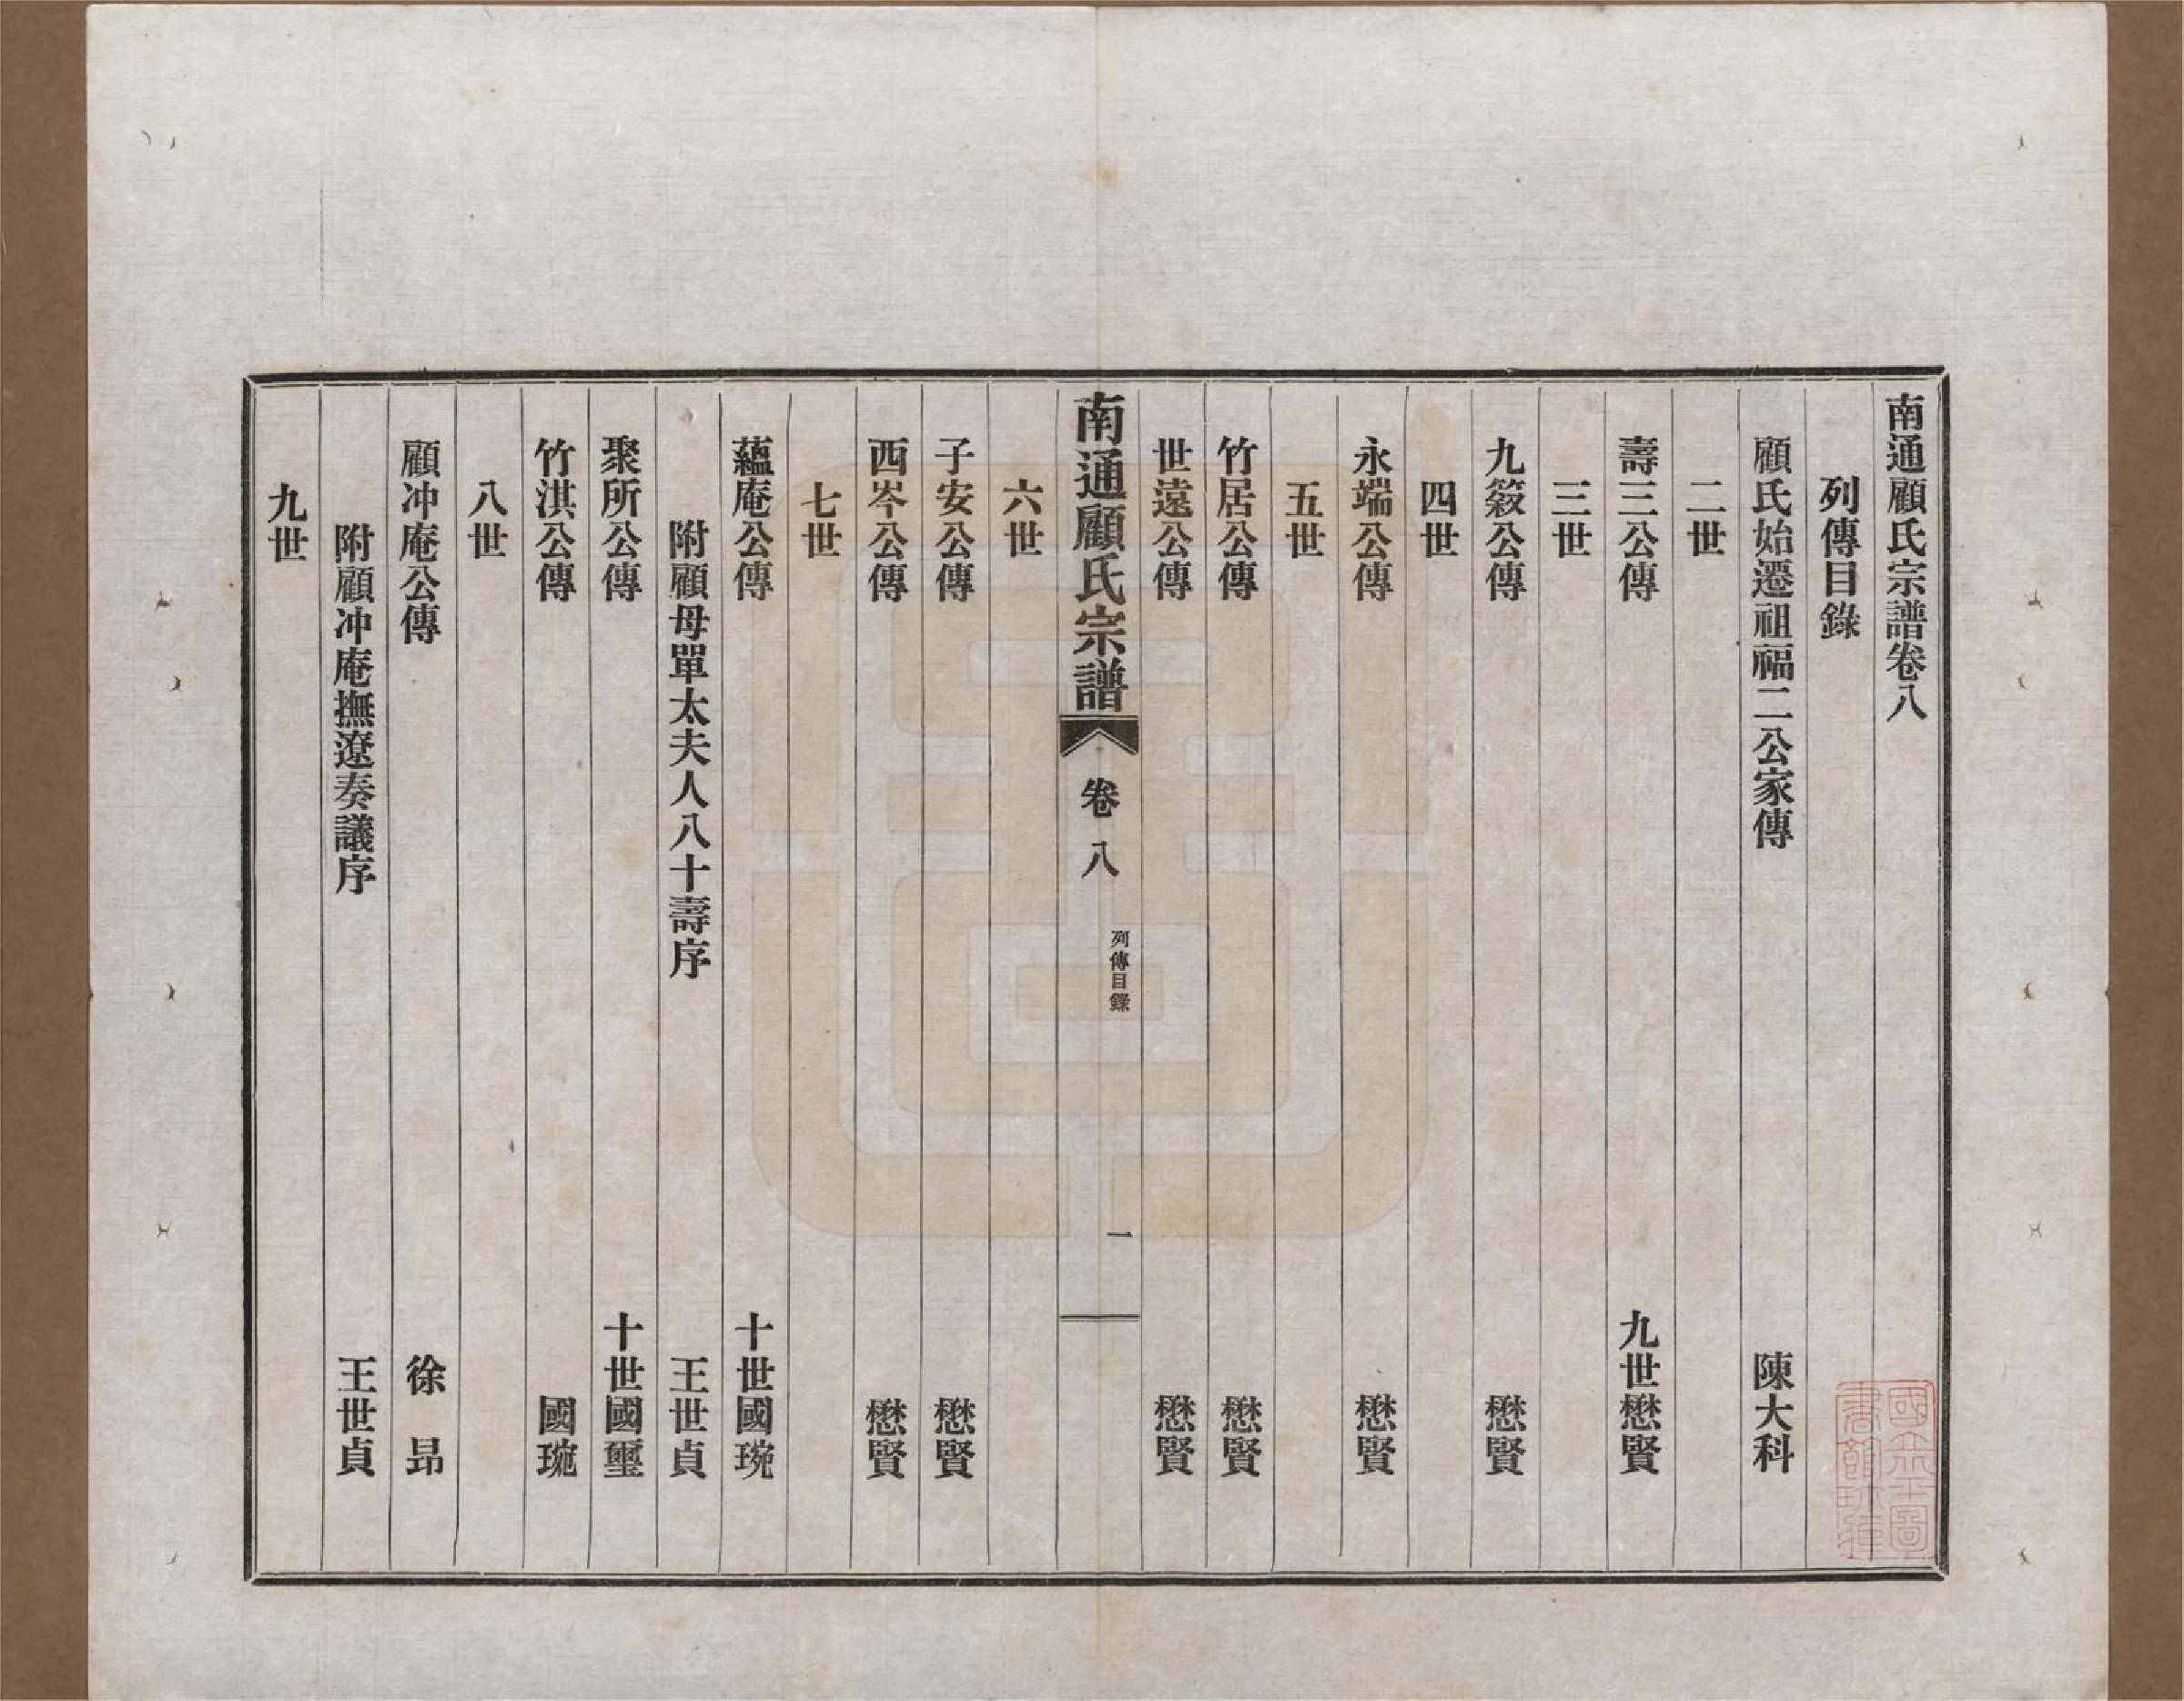 南通顧氏宗譜卷八
列傳目錄
顧氏始遷祖福二公家傳　陳大科
二世
壽三公傳　九世懋賢
三世
九敘公傳　懋賢
四世
永端公傳　懋賢
五世
竹居公傳　懋賢
世遠公傳　懋賢
南通顧氏宗譜　卷八　列傳目錄　一
六世
子安公傳　懋賢
西岑公傳　懋賢
七世
蘊庵公傳　十世國琬
附顧母單太夫人八十壽序　王世貞
聚所公傳　十世國璽
竹淇公傳　國琬
八世
顧冲庵公傳　徐昂
附顧冲庵撫遼奏議序　王世貞
九世
國立北平圖書館珍藏